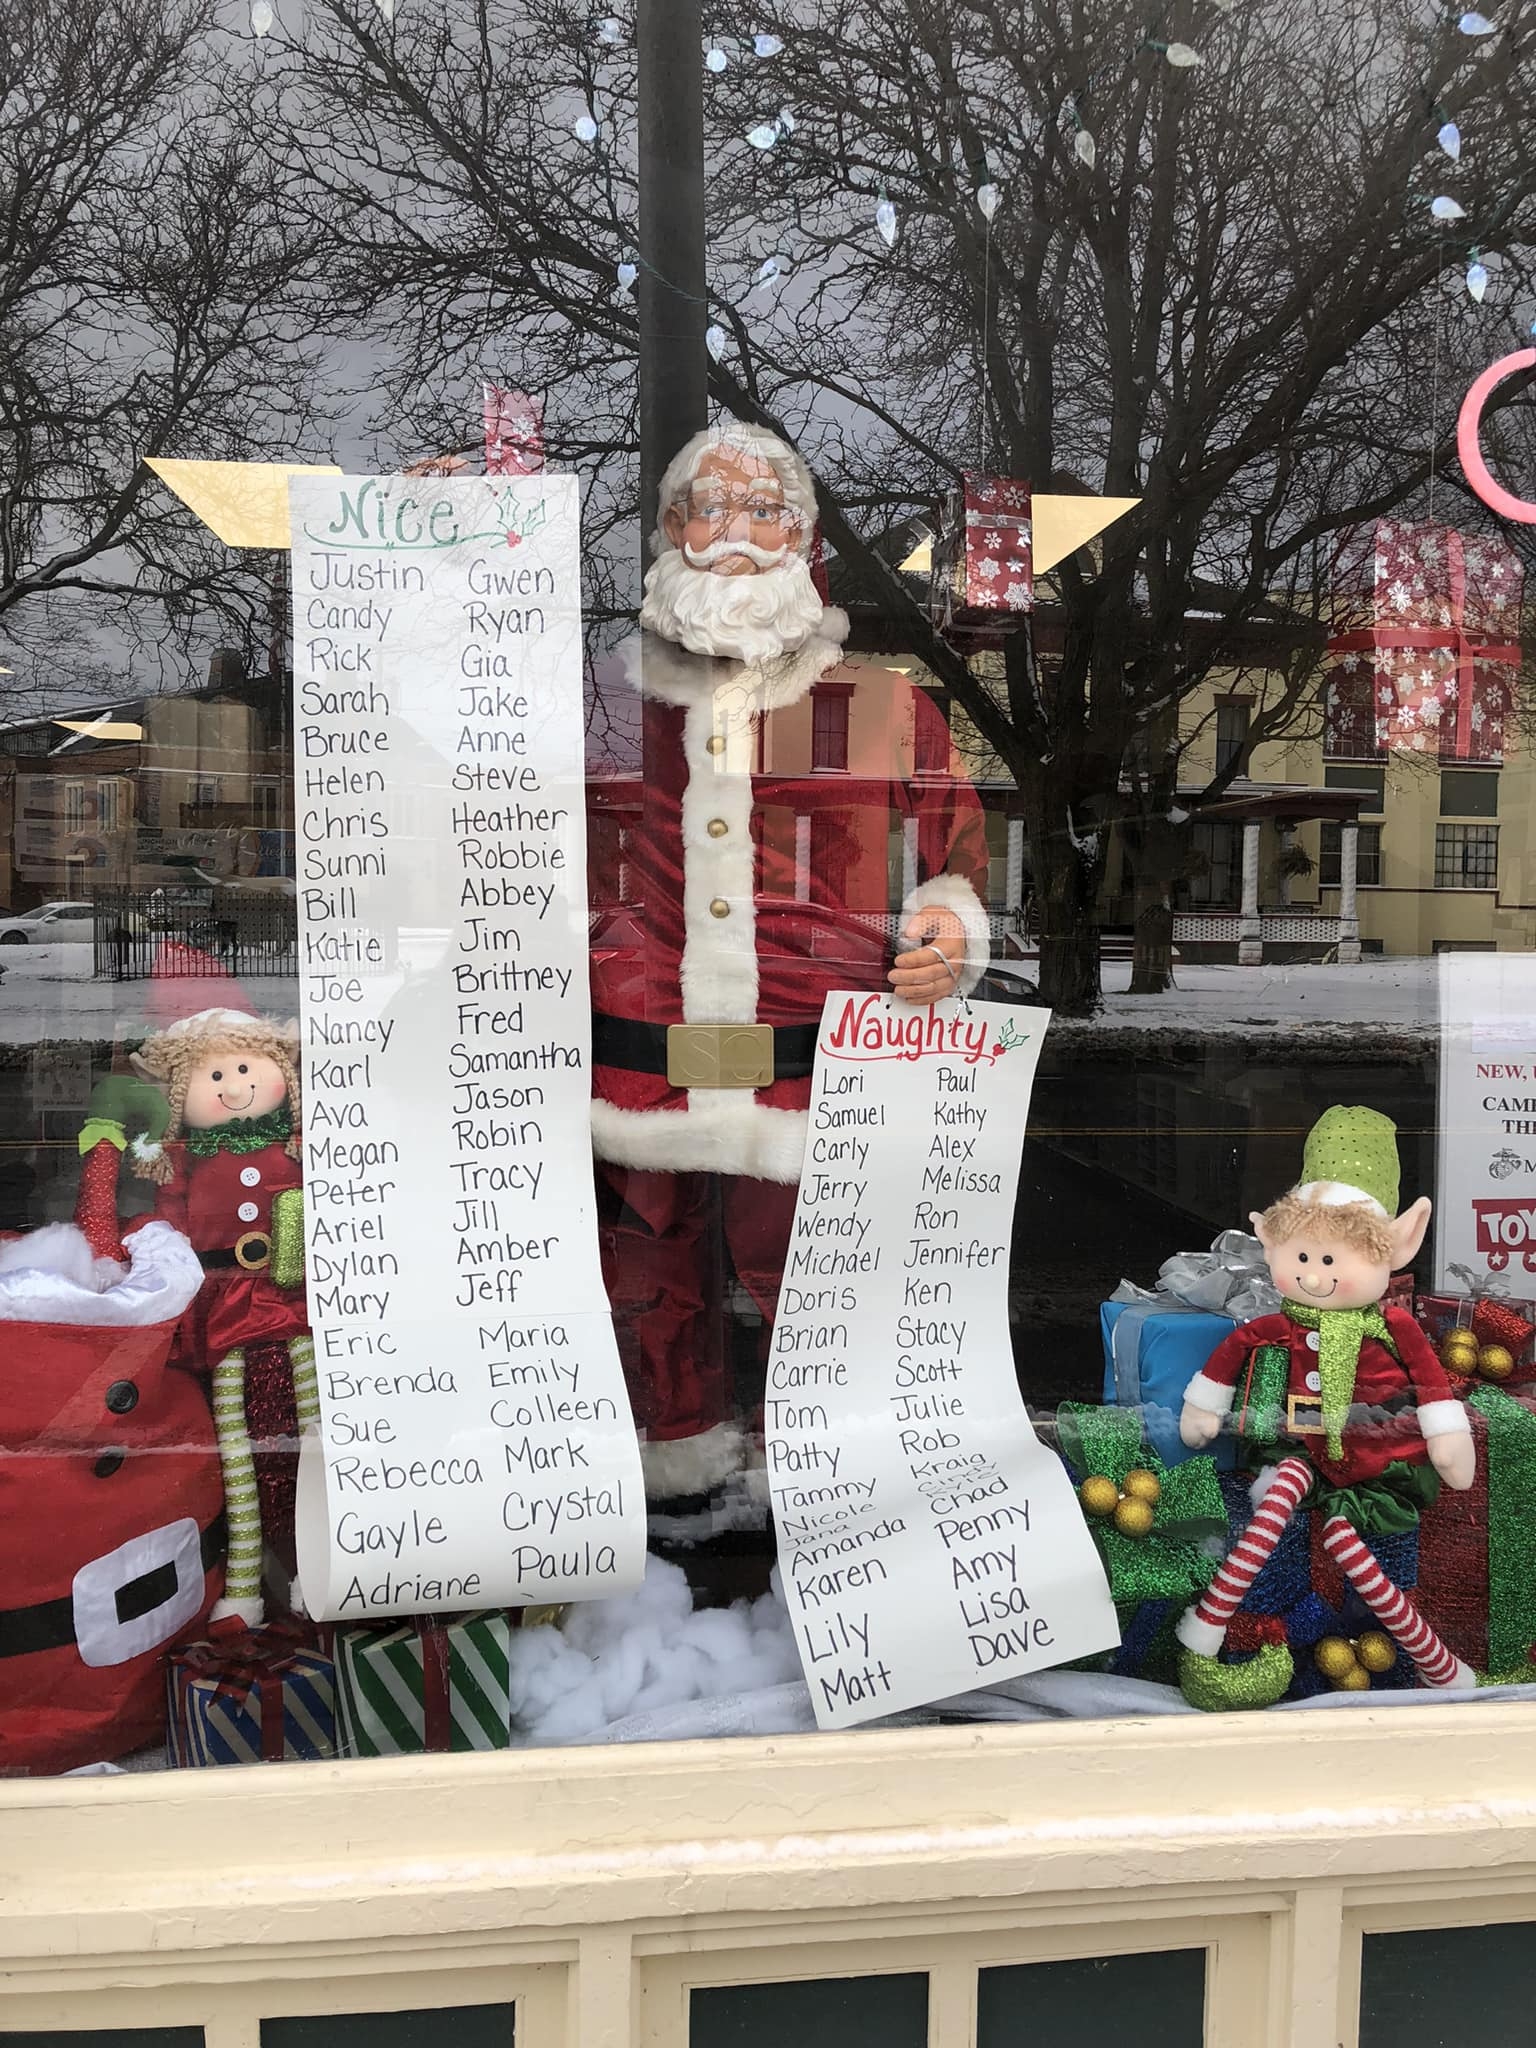 Nice
Justin Gwen
Candy Ryan
Rick Gia
Sarah Jake
Bruce Anne
Helen Steve
Chris Heather
Sunni Robbie
Bill Abbey
Katie Jim
Joe Brittney
Nancy Fred
Karl Samantha
Ava Jason
Megan Robin
Peter Tracy
Ariel Jill
Dylan Amber
Mary Jeff
Eric Maria
Brenda Emily
Sue Colleen
Rebecca Mark
Gayle Crystal
Adriane Paula
SC
Naughty
Lori Paul
Samuel Kathy
Carly Alex
Jerry Melissa
Wendy Ron
Michael Jennifer
Doris Ken
Brian Stacy
Carrie Scott
Tom Julie
Patty Rob
Tammy Kraig
Nicole Cindy
Jana
Amanda Chad
Karen Penny
Lily Amy
Matt Lisa
Dave
NEW,
TOY